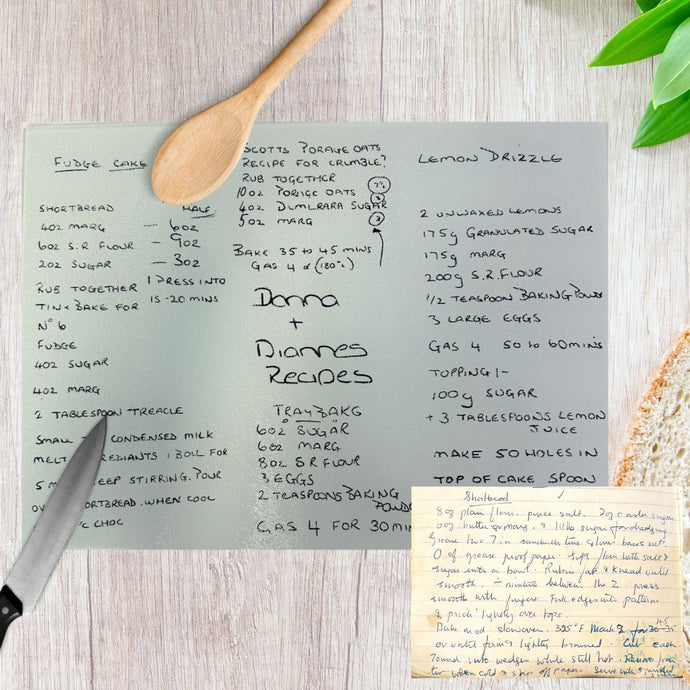 FUDGE CAKE
HALF
SHORTBREAD
4OZ MARG — 6OZ
6OZ S.R FLOUR — 9OZ
2OZ SUGAR — 3OZ
RUB TOGETHER PRESS INTO
TIN + BAKE FOR 15-20 MINS
Nº 6
FUDGE
4OZ SUGAR
4OZ MARG
2 TABLESPOON TREACLE
SMALL CONDENSED MILK
MELT BOIL FOR
5 STIRRING. POUR
SHORTBREAD. WHEN COOL
CHOC
SCOTTS PORAGE OATS
RECIPE FOR CRUMBLE?
RUB TOGETHER
10OZ PORIGE OATS
4OZ DUMLRARA SUGAR
5OZ MARG
3
BAKE 35 TO 45 MINS
GAS 4 or (180°c)
Donna
+
Diannes
Recipes
TRAYBAKG
6OZ SUGAR
6OZ MARG
8OZ S R FLOUR
3 EGGS
2 TEASPOONS BAKING
POWDE
GAS 4 FOR 30 MIN
LEMON DRIZZLE
2 UNWAXED LEMONS
175g GRANULATED SUGAR
175g MARG
200g S.R. FLOUR
1/2 TEASPOON BAKING POWDR
3 LARGE EGGS
GAS 4 50 to 60 MINS
TOPPING :-
100g SUGAR
+ 3 TABLESPOONS LEMON
JUICE
MAKE 50 HOLES IN
TOP OF CAKE SPOON
Shortbread
8oz plain flour. pince salt. 2oz caster sugar
butter or marg. & little sugar for dredging
Grease two 7in sandwich tins & line bases with
O of grease proof paper. Sift flour with salt &
sugar into a bowl. Rub in fat & knead until
smooth. ÷ mixture between the 2. press
smooth with fingers. Fork edges into pattern
& prick lightly over tops.
Bake mod. slow oven. 325°F Mark 3 for 30-35 45
or until firm & lightly browned. Cut each
round into wedges while still hot. Remove from
tin when cold & strip off paper. Serve with